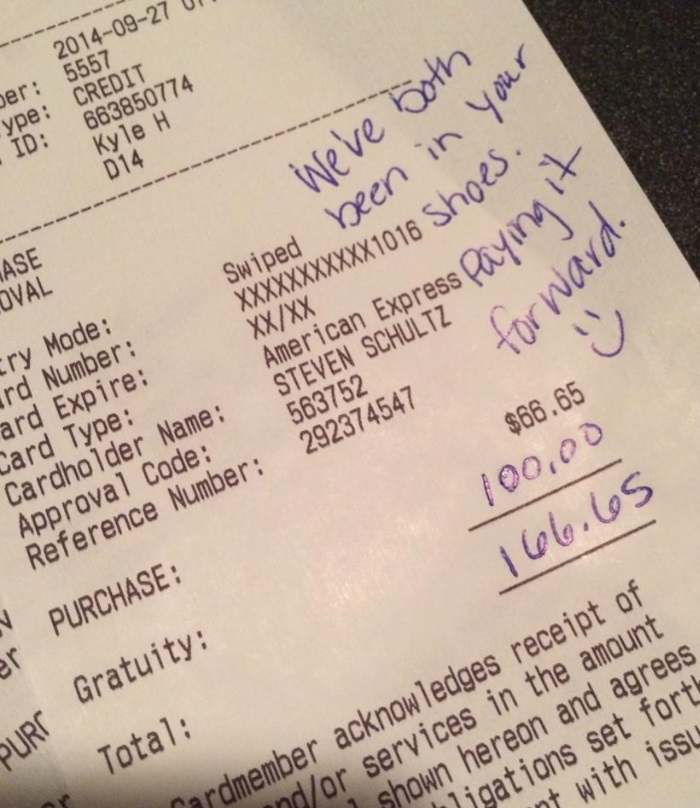 2014-09-27
5557
ype: CREDIT
ID: 663850774
Kyle H
D14
We've both
been in your
shoes.
Paying it
forward.
:)
ASE
OVAL
try Mode: Swiped
rd Number: XXXXXXXXXXX1016
ard Expire: XX/XX
Card Type: American Express
Cardholder Name: STEVEN SCHULTZ
Approval Code: 563752
Reference Number: 292374547
PURCHASE: $66.65
Gratuity: 100.00
Total: 166.65
ardmember acknowledges receipt of
nd/or services in the amount
shown hereon and agrees
ligations set forth
with issu